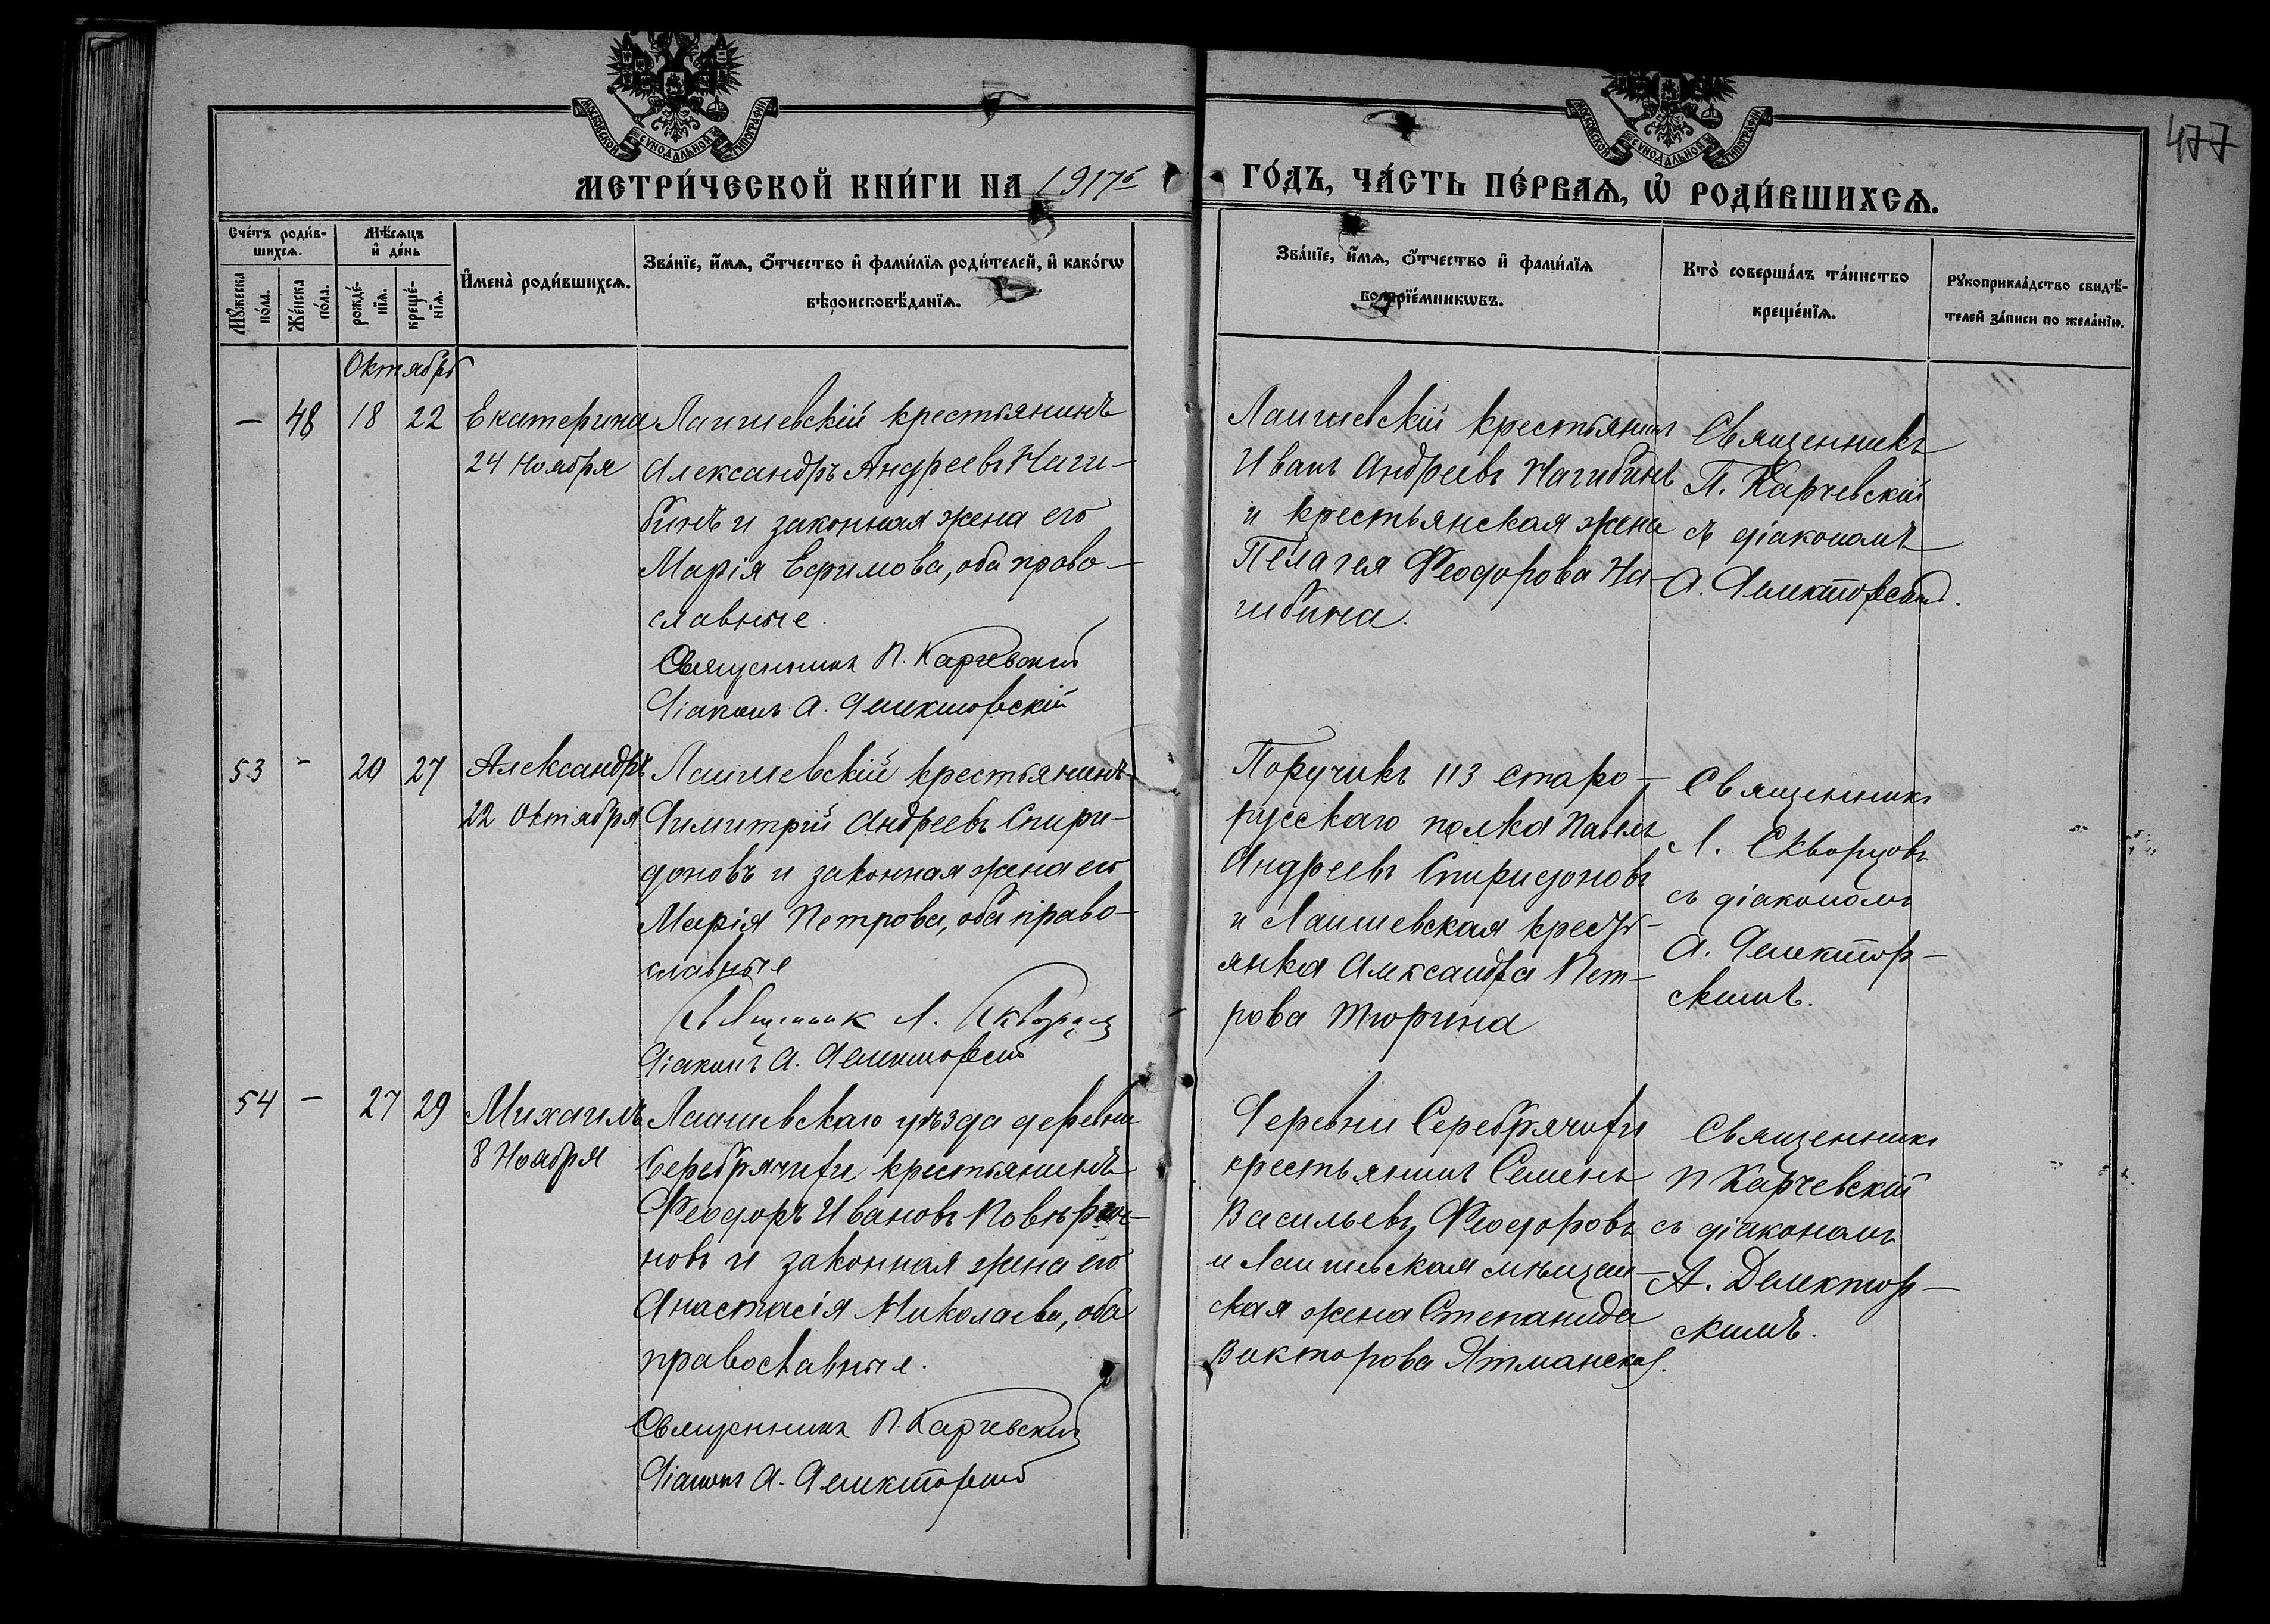 477
МОСКОВСКОЙ СѴНОДАЛЬНОЙ ТИПОГРАФІИ
МОСКОВСКОЙ СѴНОДАЛЬНОЙ ТИПОГРАФІИ
МЕТРИ́ЧЕСКОЙ КНИ́ГИ НА 1917 ГО́ДЪ, ЧА́СТЬ ПЕ́РВАѦ, Ѡ҆ РОДИ́ВШИХСѦ.
Сче́тъ роди́в-
шихсѧ.
Мꙋ́жеска по́ла.
Же́нска по́ла.
Мѣ́сѧцъ
и҆ де́нь
рожде́-
нїѧ.
креще́-
нїѧ.
И҆мена̀ роди́вшихсѧ.
Зва́нїе, и҆́мѧ, ѻ҆́тчество и҆ фами́лїѧ роди́телей, и҆ како́гѡ
вѣроисповѣ́данїѧ.
Зва́нїе, и҆́мѧ, ѻ҆́тчество и҆ фами́лїѧ
воспрїе́мникѡвъ.
Кто̀ соверша́лъ та́инство
креще́нїѧ.
Рꙋкоприкла́дство свидѣ́-
телей за́писи по жела́нїю.
Октябрь
— 48 18 22
Екатерина
24 Ноября
Лаишевскій крестьянинъ
Александръ Андреевъ Наги-
бинъ и законная жена его
Марія Ефимова, оба право-
славные.
Священникъ П. Карчевскій
Діаконъ А. Делекторскій
Лаишевскій крестьянинъ
Иванъ Андреевъ Нагибинъ
и крестьянская жена
Пелагея Феодорова На-
гибина.
Священникъ
П. Карчевскій
съ діакономъ
А. Делекторскимъ.
53 - 20 27
Александръ
22 Октября
Лаишевскій крестьянинъ
Димитрій Андреевъ Спири-
доновъ и законная жена его
Марія Петрова, оба право-
славные
Священник Л. Скворцов
Діаконъ А. Делекторскій
Поручикъ 113 Старо-
русскаго полка Павелъ
Андреевъ Спиридоновъ
и Лаишевская кресть-
янка Александра Пет-
рова Тюрина
Священникъ
Л. Скворцовъ
съ діакономъ
А. Делектор-
скимъ.
54 — 27 29
Михаилъ
8 Ноября
Лаишевскаго уѣзда деревни
Серебрячихи крестьянинъ
Феодоръ Ивановъ
новъ и законная жена его
Анастасія Николаева, оба
православные.
Священникъ П. Карчевскій
Діаконъ А. Делекторскій
Деревни Серебрячихи
крестьянинъ Семенъ
Васильевъ Феодоровъ
и Лаишевская мѣщан-
ская жена Степанида
Викторова Атманская.
Священникъ
П Карчевскій
съ діакономъ
А. Делектор-
скимъ.